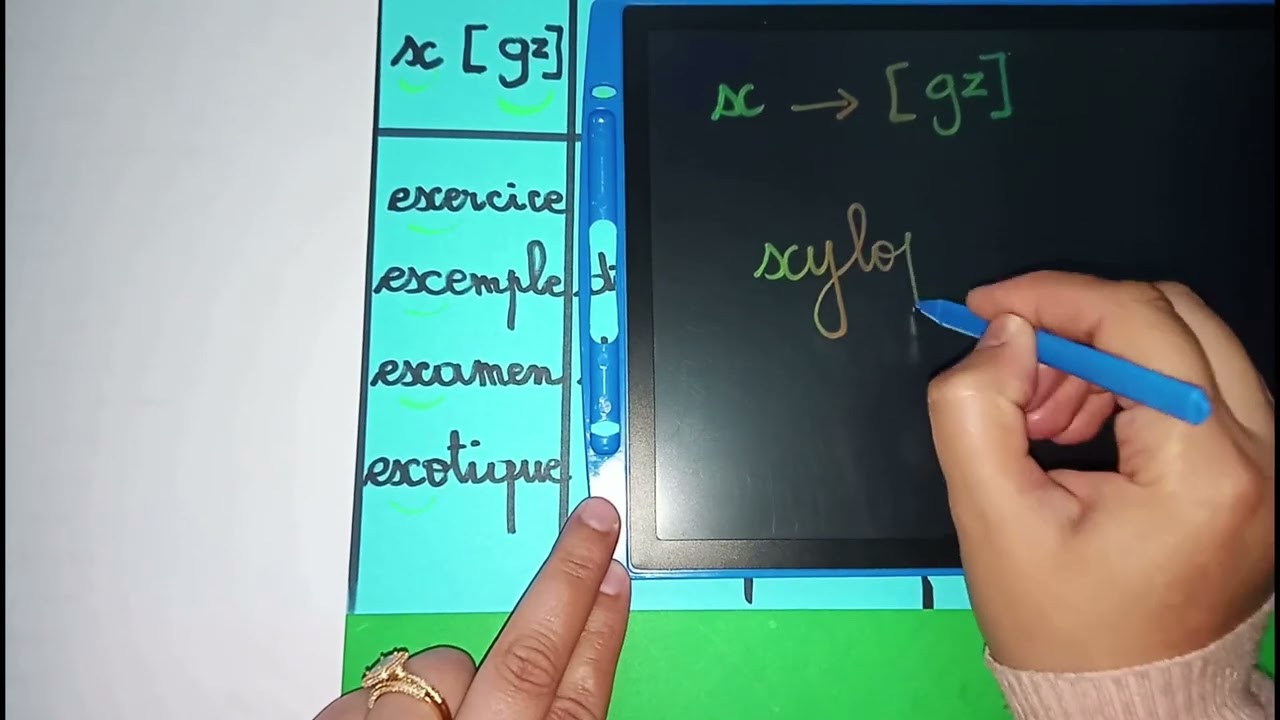 x [gz]
exercice
exemple
examen
exotique
x → [gz]
xylo